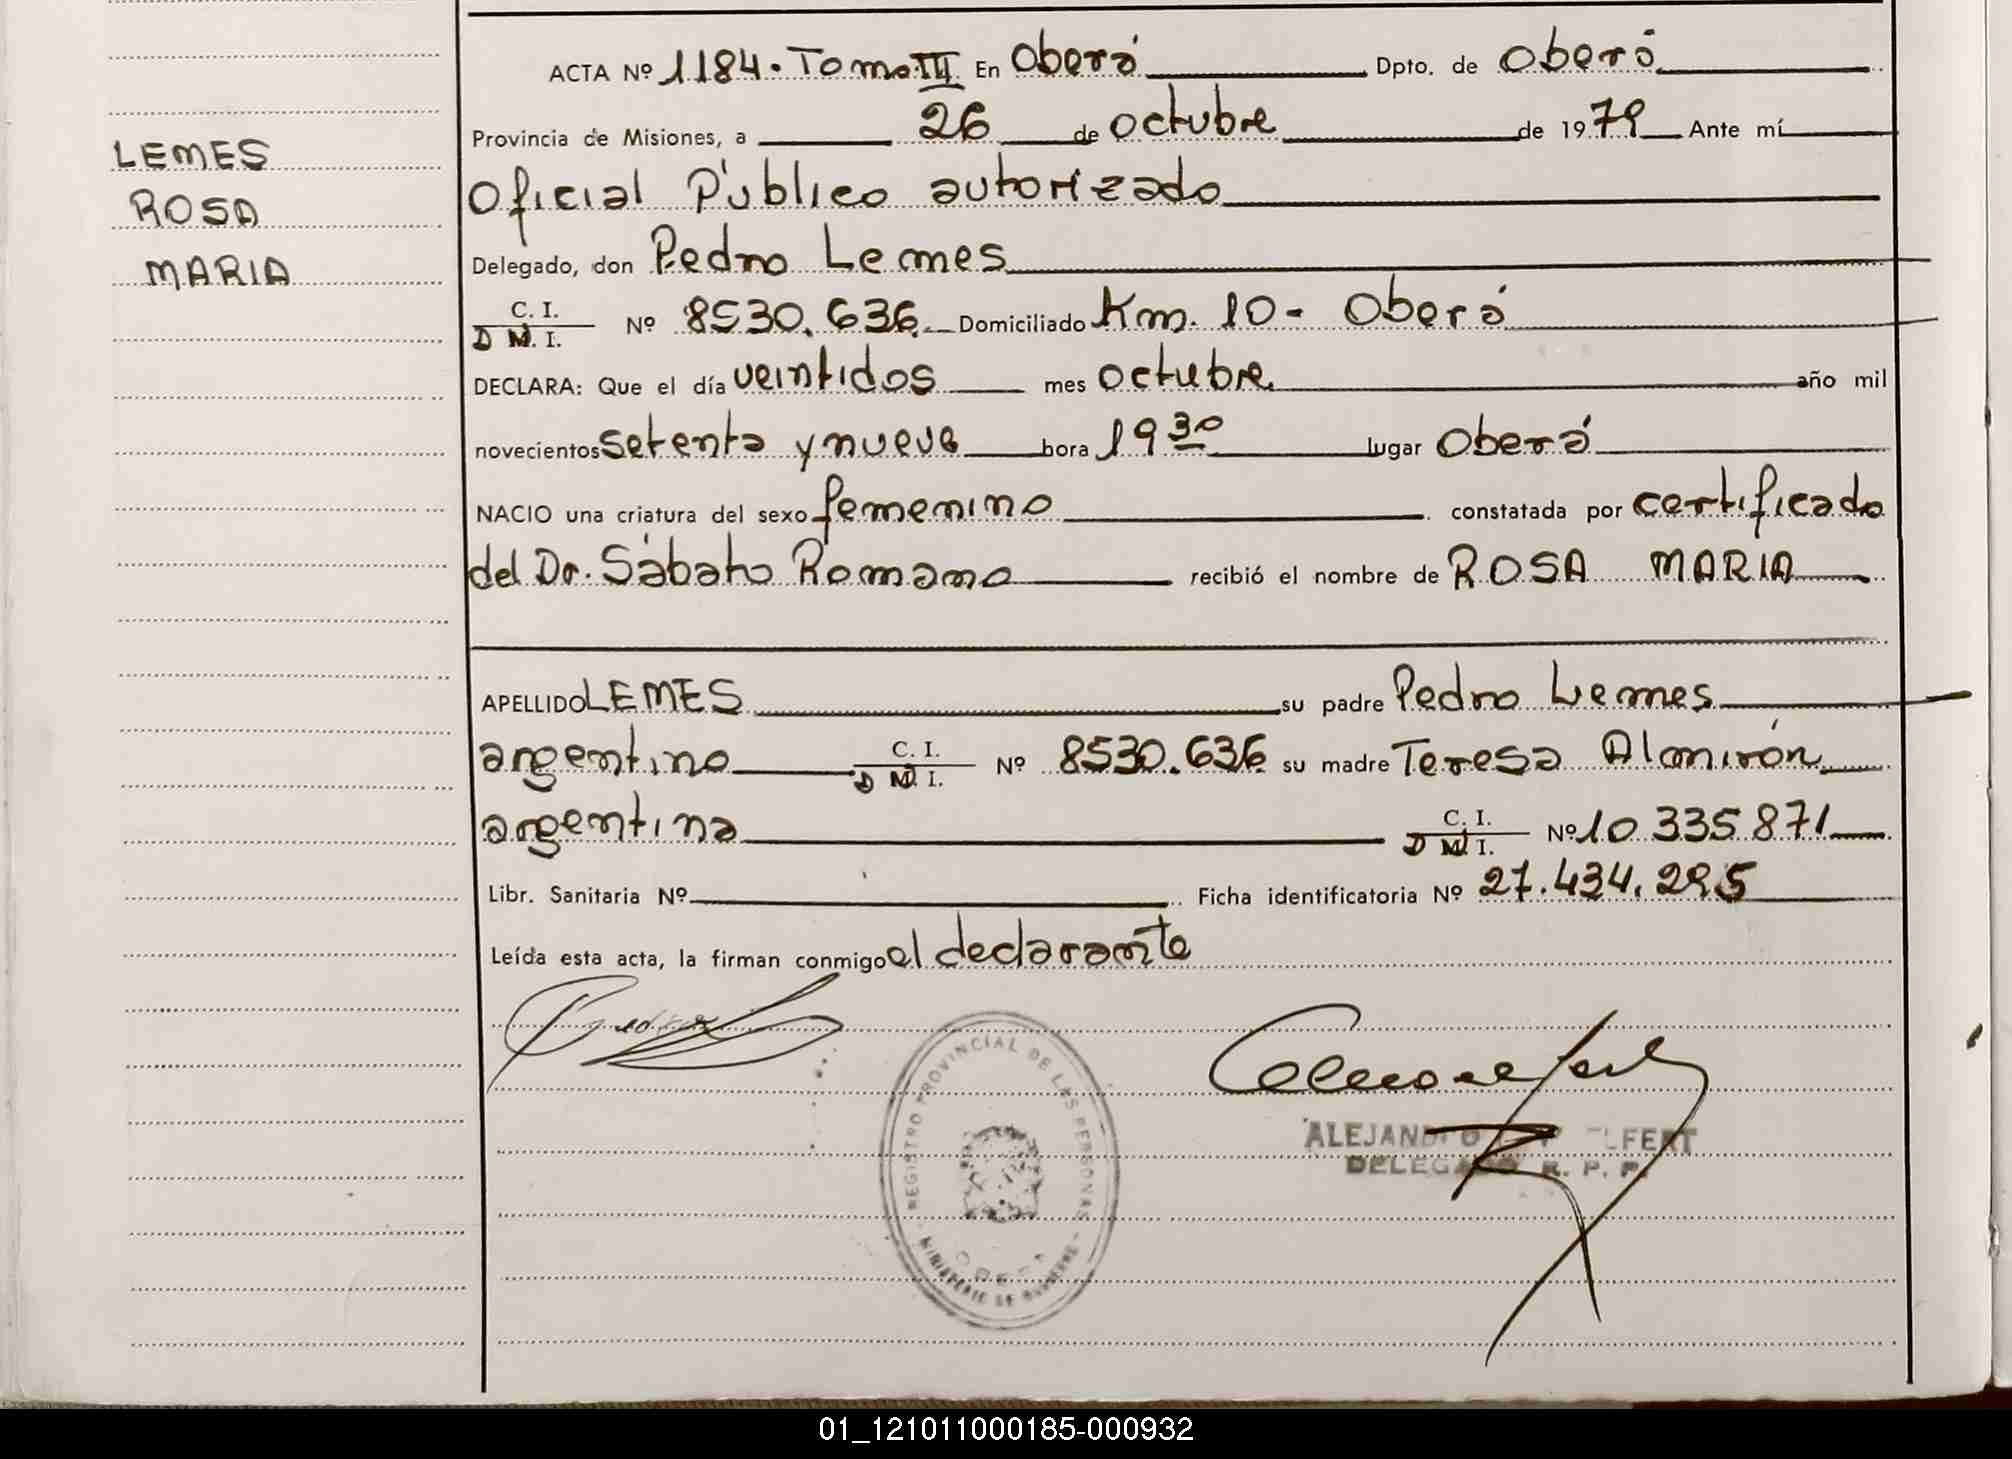 LEMES
ROSA
MARIA
ACTA Nº 1184. Tomo III En Oberá Dpto. de Oberá
Provincia de Misiones, a 26 de octubre de 1979 Ante mí
Oficial Público autorizado
Delegado, don Pedro Lemes
C. I.
D M. I. Nº 8530.636 Domiciliado Km. 10 - Oberá
DECLARA: Que el día veintidos mes octubre año mil
novecientos setenta y nueve hora 19 30 lugar Oberá
NACIO una criatura del sexo femenino constatada por certificado
del Dr. Sábato Romano recibió el nombre de ROSA MARIA
APELLIDO LEMES su padre Pedro Lemes
argentino C. I. D M. I. Nº 8530.636 su madre Teresa Almirón
argentina C. I. D M. I. Nº 10.335.871
Libr. Sanitaria Nº Ficha identificatoria Nº 27.434.295
Leída esta acta, la firman conmigo el declarante
REGISTRO PROVINCIAL DE LAS PERSONAS
MINISTERIO DE GOBIERNO
ALEJANDRO
DELEGADO R. P. P.
01_121011000185-000932